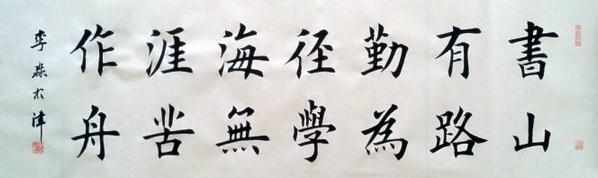 書山
有路
勤為
径學
海無
涯苦
作舟
李 於津